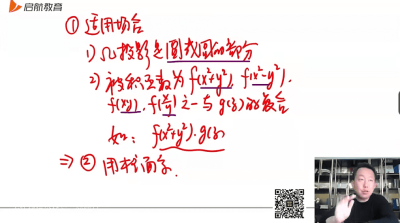 启航教育
① 适用场合
1) Ω投影是圆或圆的部分
2) 被积函数为 f(x²+y²), f(x²-y²),
f(xy), f(y/x) 之一与 g(z) 的复合
如: f(x²+y²)·g(z)
⇒ ② 用柱面系.